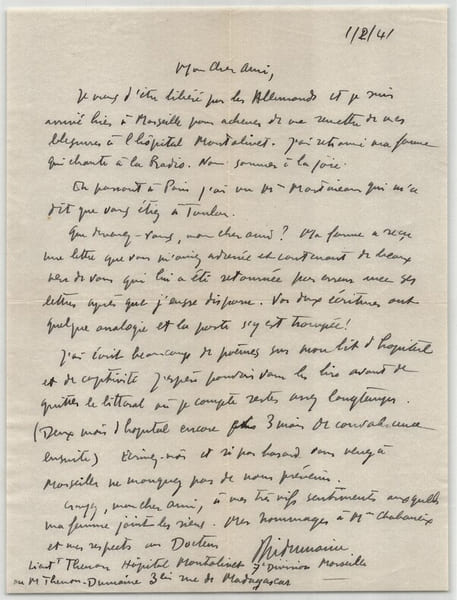 1/2/41
Mon cher ami,
Je viens d'être libéré par les Allemands et je suis
arrivé hier à Marseille pour achever de me remettre de mes
blessures à l'hôpital Montolivet. J'ai retrouvé ma femme
qui chante à la Radio. Nous sommes à la joie.
En passant à Paris j'ai vu Mr Martineau qui m'a
dit que vous étiez à Toulon.
Que devenez-vous, mon cher ami? Ma femme a reçu
une lettre que vous m'aviez adressée et contenant de beaux
vers de vous qui lui a été retournée par erreur avec ses
lettres après que j'eusse disparu. Vos deux écritures ont
quelque analogie et la poste s'y est trompée!
J'ai écrit beaucoup de poèmes sur mon lit d'hôpital
et de captivité. J'espère pouvoir vous les lire avant de
quitter le littoral où je compte rester assez longtemps.
(Deux mois d'hôpital encore plus 3 mois de convalescence
ensuite) Ecrivez-moi et si par hasard vous venez à
Marseille ne manquez pas de nous prévenir.
Croyez, mon cher ami, à mes très vifs sentiments auxquels
ma femme joint les siens. Mes hommages à Me Chabaneix
et mes respects au Docteur
Lieut Thenon Hôpital Montolivet 7e Division Marseille
ou M Thenon-Dumaine 3 rue de Madagascar